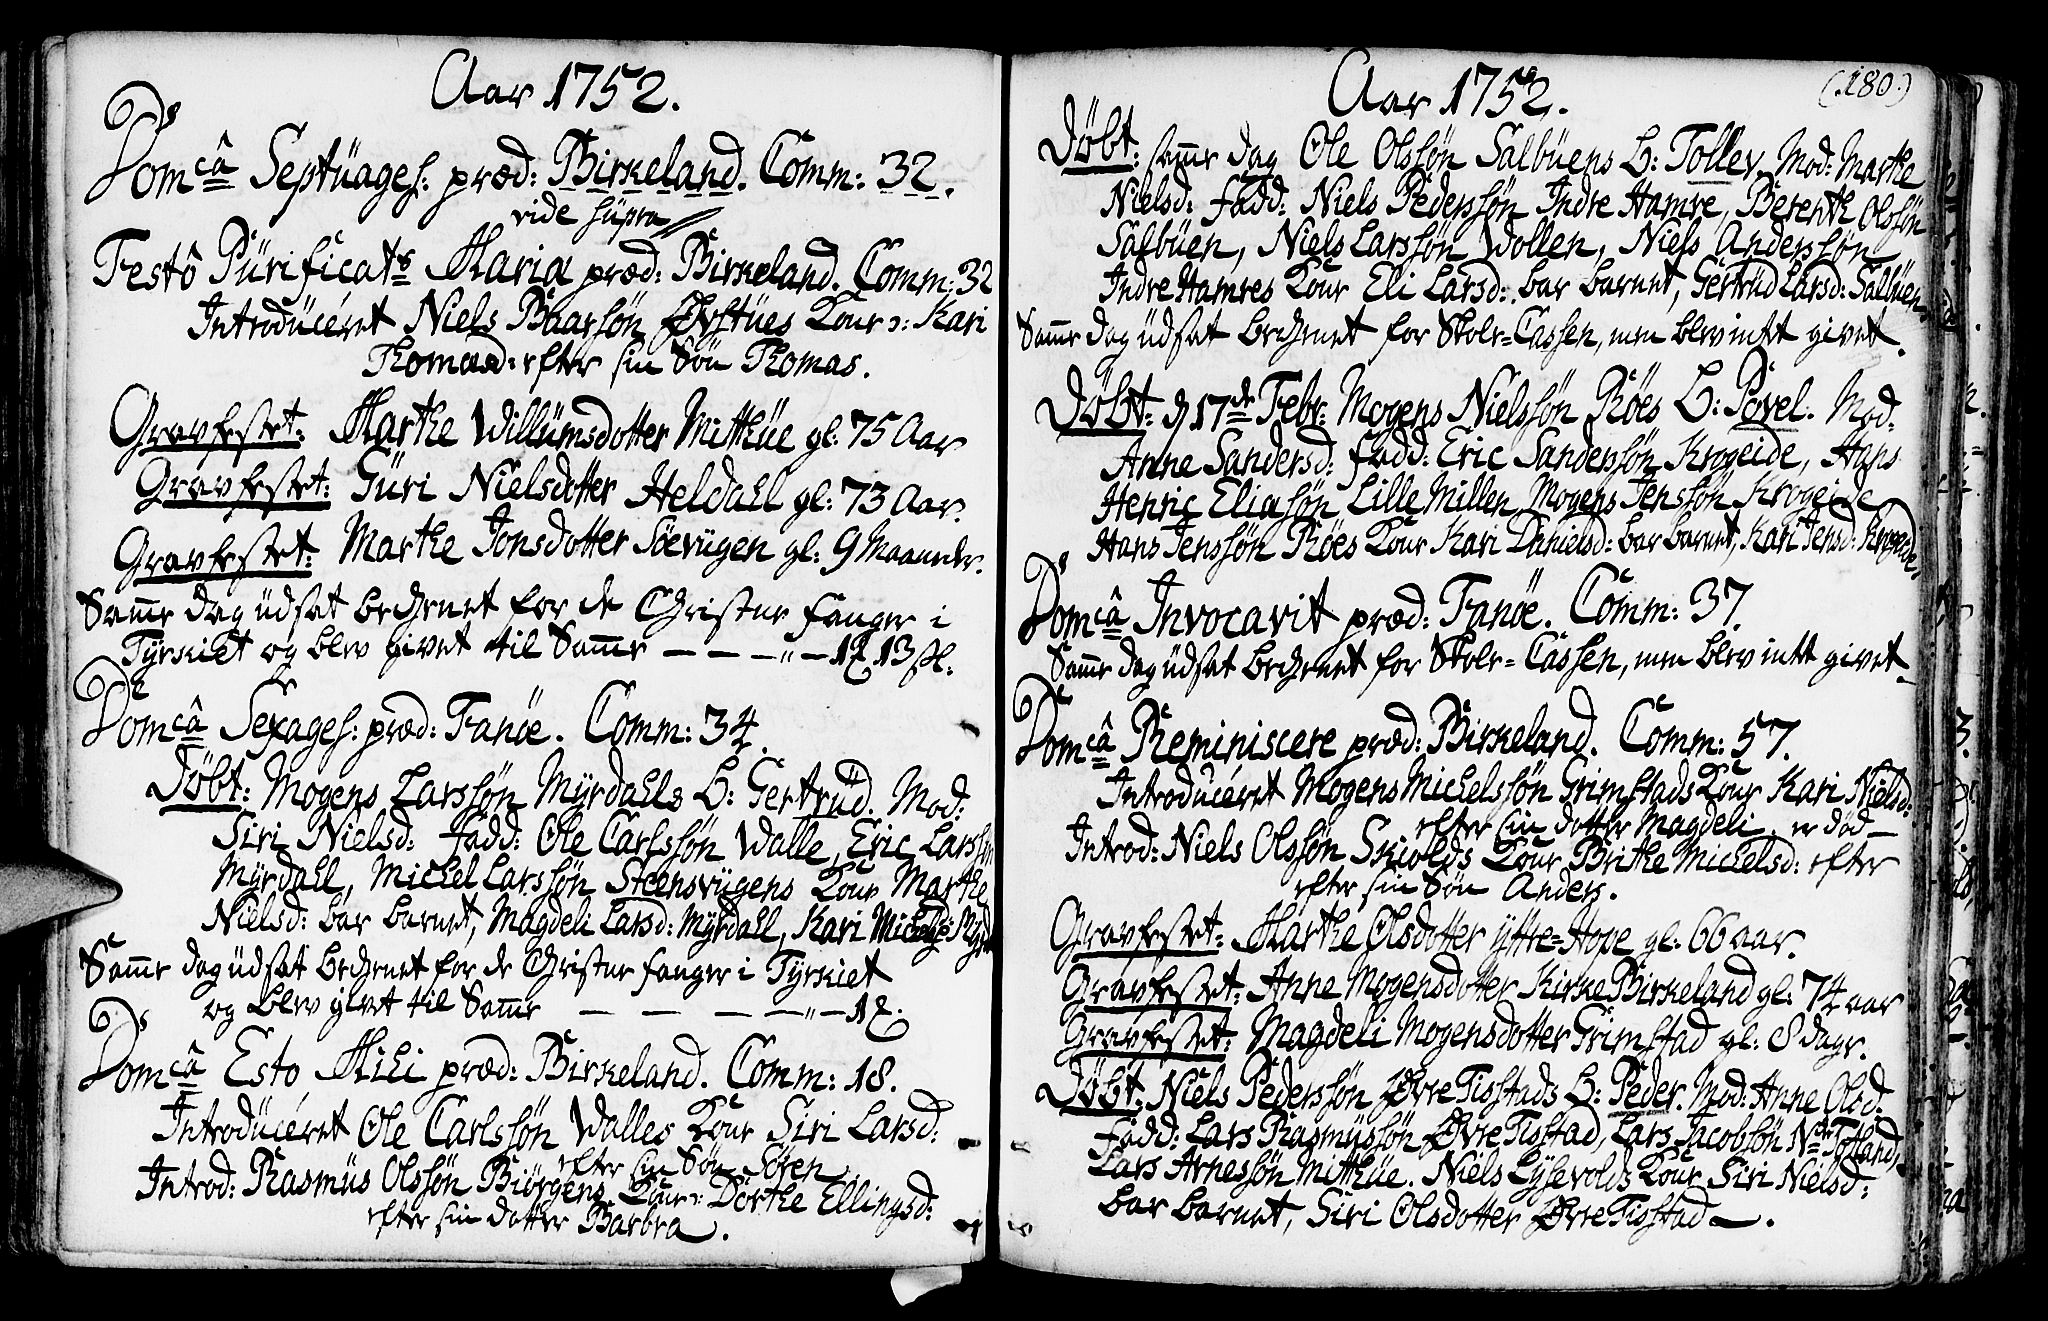 Aar 1752.
Domcâ Septüages: præd: Birkeland. Comm: 32.
vide süpra
Festô Pürificats Mariæ præd: Birkeland. Comm: 32
Introdüceret Niels Baarsøn Øvstües Kone: Kari
Thomæd: efter sin Søn Thomas.
Gravfestet: Marthe Willümsdotter Mitthüe gl: 75 Aar
Gravfestet: Güri Nielsdotter Heldahl gl: 73 Aar.
Gravfestet: Marthe Jonsdotter Søevügen gl: 9 Maaneder.
Samme dag üdsat bechenet for de Christne fanger i
Tÿrkiet og blev givet til Samme — — — „ — 1 13 sk.
Domcâ Sexages: præd: Fanøe. Comm: 34.
Döbt: Mogens Larssøn Mÿrdahls B: Gertrüd. Mod:
Siri Nielsd: fadd: Ole Carlssøn Walle, Eric Larssøn
Mÿrdahl, Michel Larssøn Steensvügens Kone Marthe
Nielsd: bar barnet, Magdeli Larsd: Mÿrdahl, Kari Michelsd:
Samme dag üdsat bechenet for de Christne fanger i Tÿrkiet
og blev givet til Samme — — — — „ — 1
Domcâ Esto Mihi præd: Birkeland. Comm: 18.
Introdüceret Ole Carlssøn Walles Kone Siri Larsd:
efter sin Søn Sören
Introd: Rasmüs Olssøn Biørgens Kone: Dorthe Ellingsd:
efter sin dotter Barbra.
Aar 1752.
(180.)
Döbt: samme dag Ole Olssøn Salbüens B: Tollev. Mod: Marthe
Nielsd: fadd: Niels Pederssøn Indre Hamre, Berenth Olssøn
Salbüen, Niels Larssøn Wollen, Niels Anderssøn
Indre Hamres Kone Eli Larsd: bar barnet, Gertrüd Larsd: Salbüen.
Samme dag üdsat bechenet for Skole=Cassen, men blev intet givet.
Döbt: d 17de Febr: Mogens Nielssøn Røes B: Povel. Mod:
Anne Sandersd: fadd: Eric Sanderssøn Krogeide, Hans
Henric Eliasøn Lille Millen, Mogens Jenssøn Krogeide
Hans Jenssøn Røes Kone Kari Danielsd: bar barnet, Kari Jensd: Krogeide.
Domcâ Invocavit præd: Fanøe. Comm: 37.
Samme dag üdsat bechenet for Skole=Cassen, men blev intet givet.
Domcâ Reminiscere præd: Birkeland. Comm: 57.
Introdüceret Mogens Michelssøn Grimstads Kone Kari Nielsd:
efter sin dotter Magdeli, er død —
Introd: Niels Olssøn Skiolds Kone Brithe Michelsd: efter
efter sin Søn Anders.
Gravfestet: Marthe Olsdotter ÿttre=Hope gl: 66 aar.
Gravfestet: Anne Mogensdotter Kirke Birkeland gl: 74 aar
Gravfestet: Magdeli Mogensdotter Grimstad gl: 8 dage.
Döbt: Niels Pederssøn Øvre Tisstads B: Peder. Mod: Anne Olsd:
fadd: Lars Rasmüssøn Øvre Tisstad, Lars Jacobsøn Ndre Totland,
Lars Arnessøn Mitthüe. Niels Lÿsevolds Kone Siri Nielsd:
bar barnet, Siri Olsdotter Øvre Tisstad —.